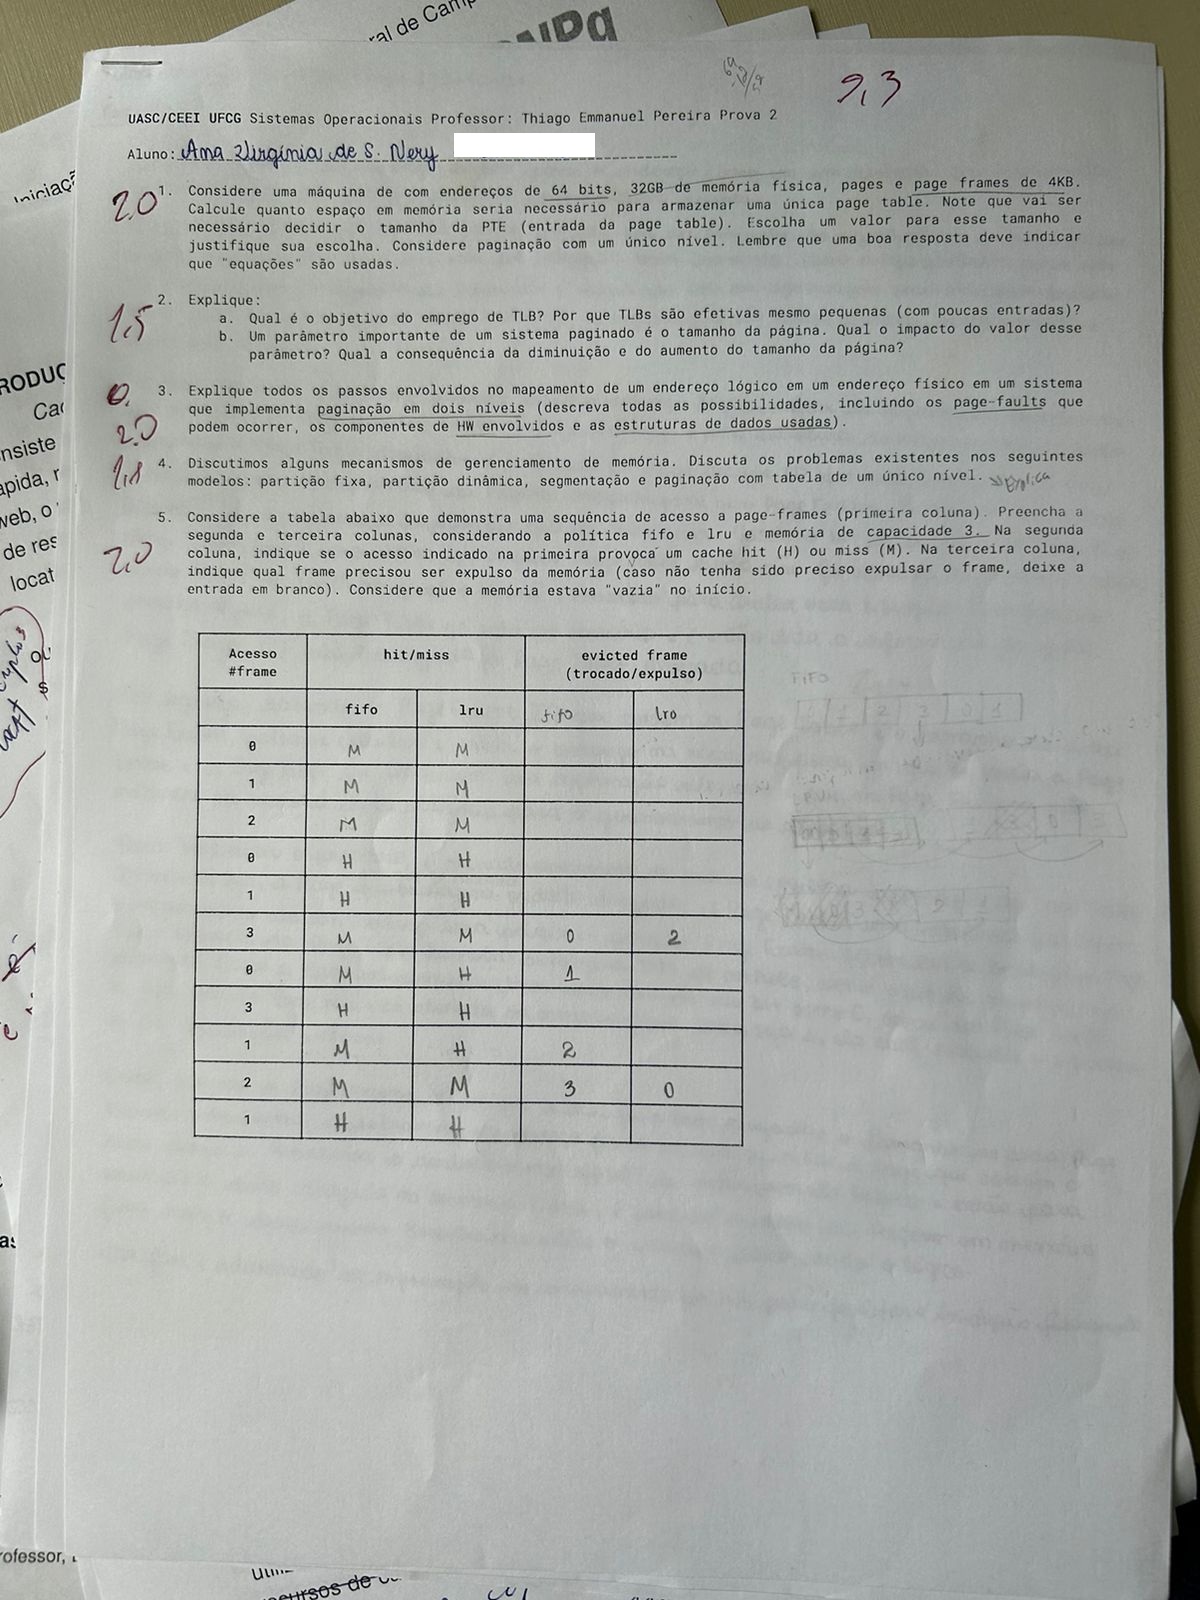 ral de Camp
9,3
UASC/CEEI UFCG Sistemas Operacionais Professor: Thiago Emmanuel Pereira Prova 2
Aluno: Ana Virgínia de S. Nery
2.0 1. Considere uma máquina de com endereços de 64 bits, 32GB de memória física, pages e page frames de 4KB.
Calcule quanto espaço em memória seria necessário para armazenar uma única page table. Note que vai ser
necessário decidir o tamanho da PTE (entrada da page table). Escolha um valor para esse tamanho e
justifique sua escolha. Considere paginação com um único nível. Lembre que uma boa resposta deve indicar
que "equações" são usadas.
1,5 2. Explique:
a. Qual é o objetivo do emprego de TLB? Por que TLBs são efetivas mesmo pequenas (com poucas entradas)?
b. Um parâmetro importante de um sistema paginado é o tamanho da página. Qual o impacto do valor desse
parâmetro? Qual a consequência da diminuição e do aumento do tamanho da página?
3. Explique todos os passos envolvidos no mapeamento de um endereço lógico em um endereço físico em um sistema
que implementa paginação em dois níveis (descreva todas as possibilidades, incluindo os page-faults que
2.0 podem ocorrer, os componentes de HW envolvidos e as estruturas de dados usadas).
4. Discutimos alguns mecanismos de gerenciamento de memória. Discuta os problemas existentes nos seguintes
modelos: partição fixa, partição dinâmica, segmentação e paginação com tabela de um único nível. explica
5. Considere a tabela abaixo que demonstra uma sequência de acesso a page-frames (primeira coluna). Preencha a
segunda e terceira colunas, considerando a política fifo e lru e memória de capacidade 3. Na segunda
2,0 coluna, indique se o acesso indicado na primeira provoca um cache hit (H) ou miss (M). Na terceira coluna,
indique qual frame precisou ser expulso da memória (caso não tenha sido preciso expulsar o frame, deixe a
entrada em branco). Considere que a memória estava "vazia" no início.
Acesso #frame hit/miss evicted frame (trocado/expulso)
fifo lru fifo lru
0 M M
1 M M
2 M M
0 H H
1 H H
3 M M 0 2
0 M H 1
3 H H
1 M H 2
2 M M 3 0
1 H H
rofessor,